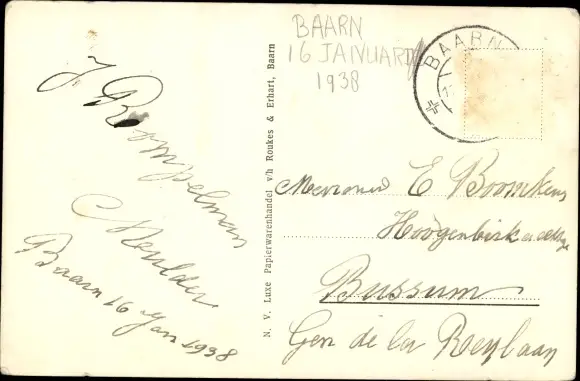 BAARN
16 JANUARI
1938
BAARN
J Rompelman
Meulder
Baarn 16 Jan 1938
N. V. Luxe Papierwarenhandel v/h Roukes & Erhart, Baarn
Mevrouw E Boomkens
Hoogenbirk
Bussum
Gen de la Reylaan